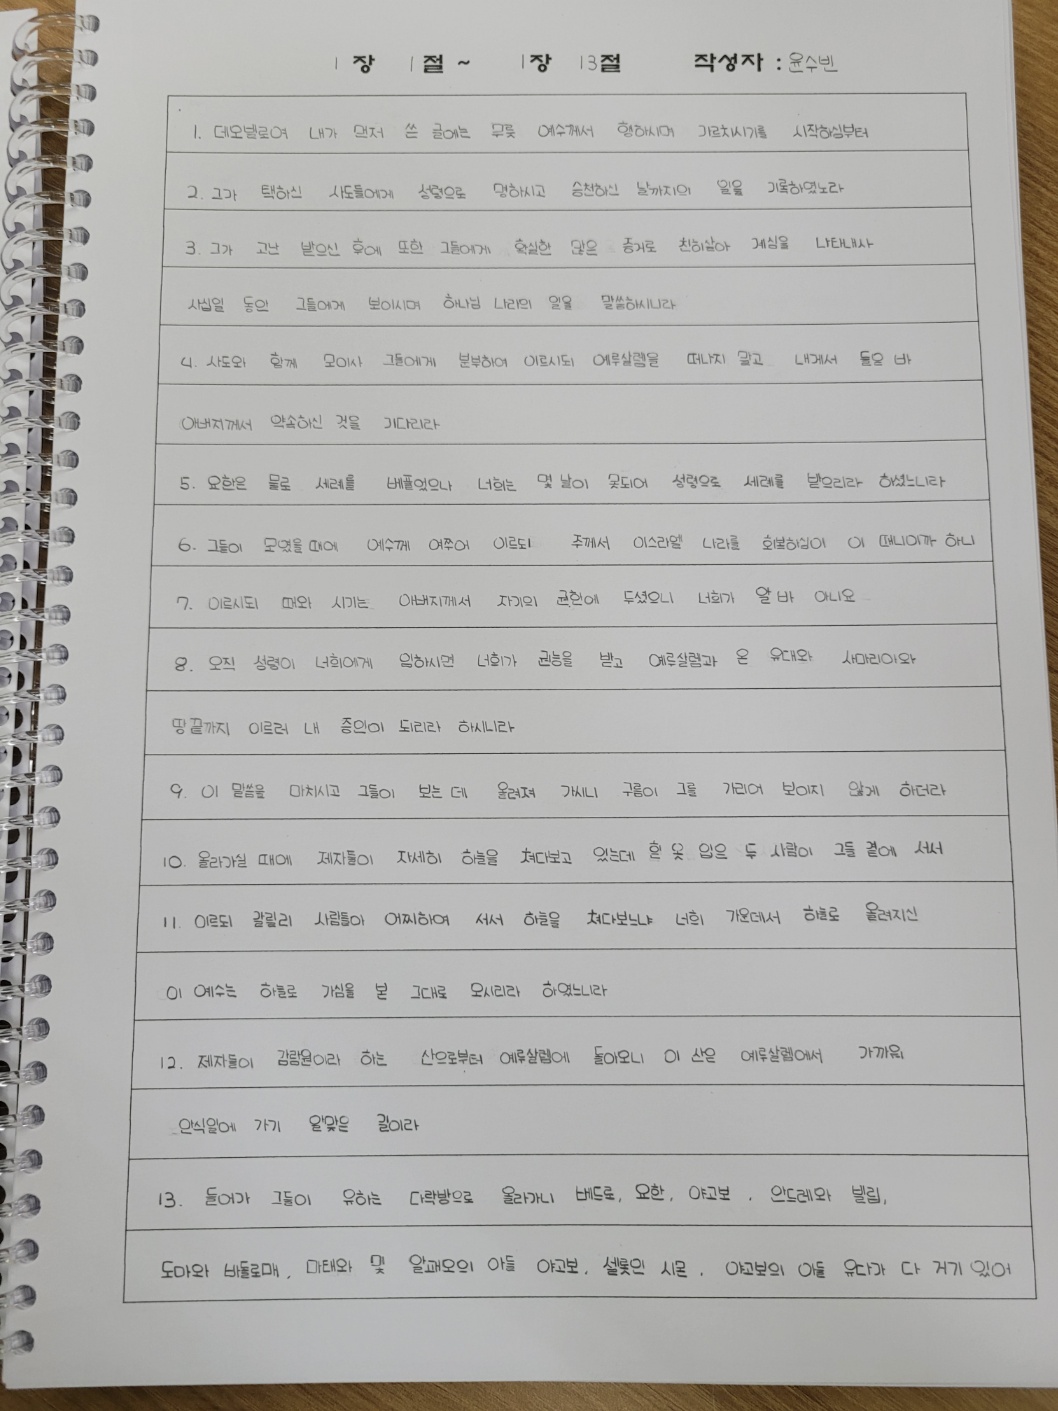 1장 1절 ~ 1장 13절 작성자 : 윤수빈
1. 데오빌로여 내가 먼저 쓴 글에는 무릇 예수께서 행하시며 가르치시기를 시작하심부터
2. 그가 택하신 사도들에게 성령으로 명하시고 승천하신 날까지의 일을 기록하였노라
3. 그가 고난 받으신 후에 또한 그들에게 확실한 많은 증거로 친히살아 계심을 나타내사
사십일 동안 그들에게 보이시며 하나님 나라의 일을 말씀하시니라
4. 사도와 함께 모이사 그들에게 분부하여 이르시되 예루살렘을 떠나지 말고 내게서 들은 바
아버지께서 약속하신 것을 기다리라
5. 요한은 물로 세례를 베풀었으나 너희는 몇 날이 못되어 성령으로 세례를 받으리라 하셨느니라
6. 그들이 모였을 때에 예수께 여쭈어 이르되 주께서 이스라엘 나라를 회복하심이 이 때니이까 하니
7. 이르시되 때와 시기는 아버지께서 자기의 권한에 두셨으니 너희가 알 바 아니요
8. 오직 성령이 너희에게 임하시면 너희가 권능을 받고 예루살렘과 온 유대와 사마리아와
땅끝까지 이르러 내 증인이 되리라 하시니라
9. 이 말씀을 마치시고 그들이 보는데 올려져 가시니 구름이 그를 가리어 보이지 않게 하더라
10. 올라가실 때에 제자들이 자세히 하늘을 쳐다보고 있는데 흰 옷 입은 두 사람이 그들 곁에 서서
11. 이르되 갈릴리 사람들아 어찌하여 서서 하늘을 쳐다보느냐 너희 가운데서 하늘로 올려지신
이 예수는 하늘로 가심을 본 그대로 오시리라 하였느니라
12. 제자들이 감람원이라 하는 산으로부터 예루살렘에 돌아오니 이 산은 예루살렘에서 가까워
안식일에 가기 알맞은 길이라
13. 들어가 그들이 유하는 다락방으로 올라가니 베드로, 요한, 야고보, 안드레와 빌립,
도마와 바돌로매, 마태와 및 알패오의 아들 야고보, 셀롯인 시몬, 야고보의 아들 유다가 다 거기 있어